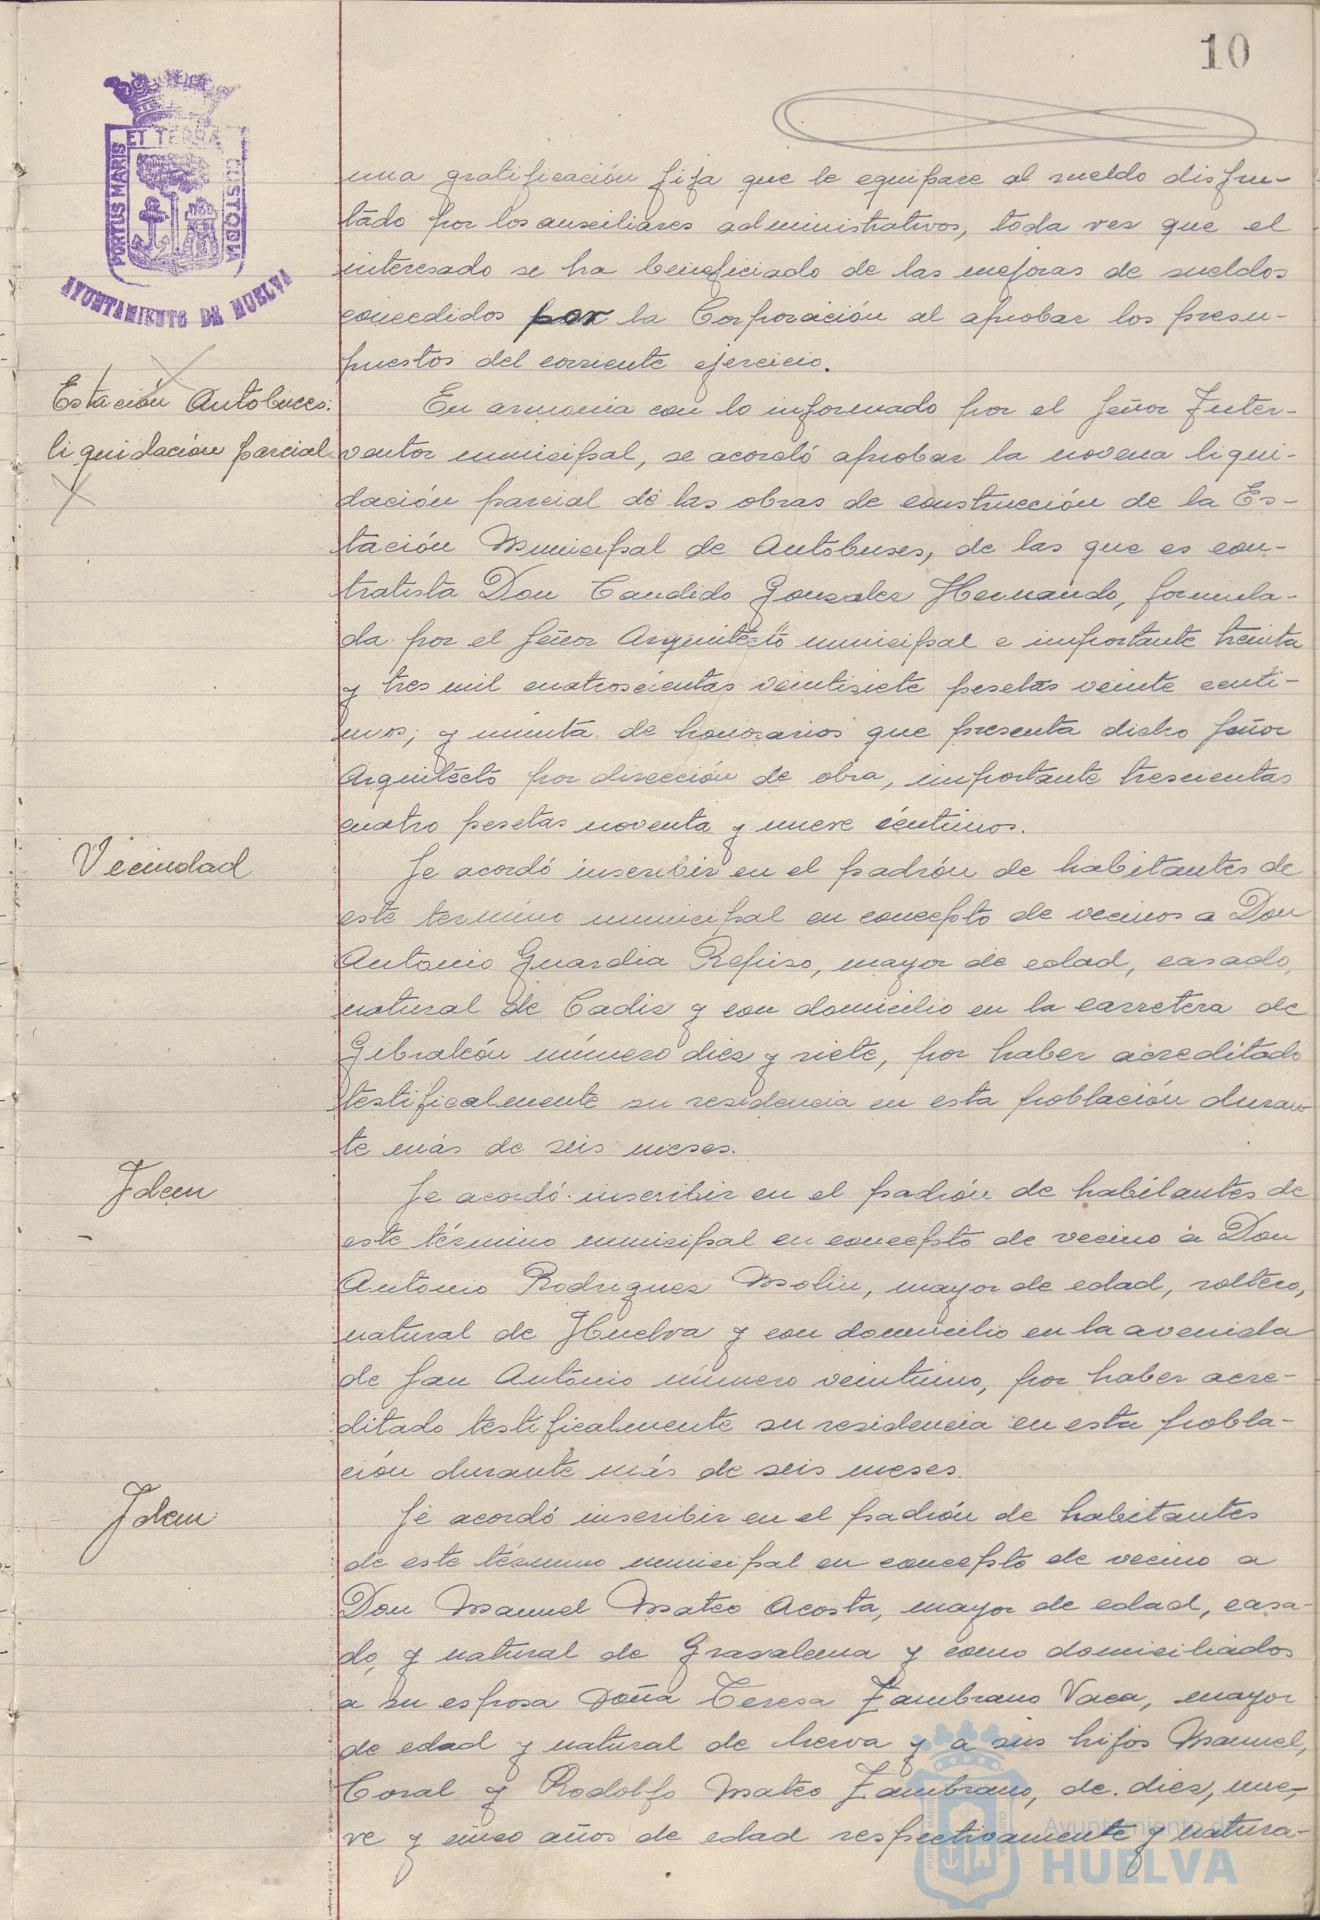 10
PORTUS MARIS
ET TERRÆ
CUSTODIA
AYUNTAMIENTO DE HUELVA
una gratificación fija que le equipare al sueldo disfru-
tado por los auxiliares administrativos, toda vez que el
interesado se ha beneficiado de las mejoras de sueldos
concedidos por la Corporación al aprobar los presu-
puestos del corriente ejercicio.
Estación Autobuses:
liquidación parcial
En armonia con lo informado por el Señor Inter-
ventor municipal, se acordó aprobar la novena liqui-
dación parcial de las obras de construcción de la Es-
tación Municipal de Autobuses, de las que es con-
tratista Don Candido Gonzalez Hernando, formula-
da por el Señor Arquitecto municipal e importante treinta
y tres mil cuatroscientas veintisiete pesetas veinte centi-
mos; y minuta de honorarios que presenta dicho Señor
Arquitecto por dirección de obra, importante trescientas
cuatro pesetas noventa y nueve céntimos.
Vecindad
Se acordó inscribir en el padrón de habitantes de
este término municipal en concepto de vecinos a Don
Antonio Guardia Repiso, mayor de edad, casado,
natural de Cadiz y con domicilio en la carretera de
Gibraleón número diez y siete, por haber acreditado
testificalmente su residencia en esta población duran-
te más de seis meses.
Idem
Se acordó inscribir en el padrón de habitantes de
este término municipal en concepto de vecino a Don
Antonio Rodriguez Molin, mayor de edad, soltero,
natural de Huelva y con domicilio en la avenida
de San Antonio número veintiuno, por haber acre-
ditado testificalmente su residencia en esta pobla-
ción durante más de seis meses.
Idem
Se acordó inscribir en el padrón de habitantes
de este término municipal en concepto de vecino a
Don Manuel Mateo Acosta, mayor de edad, casa-
do, y natural de Grazalema y como domiciliados
a su esposa Doña Teresa Zambrano Vaca, mayor
de edad y natural de Nerva y a sus hijos Manuel,
Coral y Rodolfo Mateo Zambrano, de diez, nue-
ve y cinco años de edad respectivamente y natura-
Ayuntamiento de
HUELVA